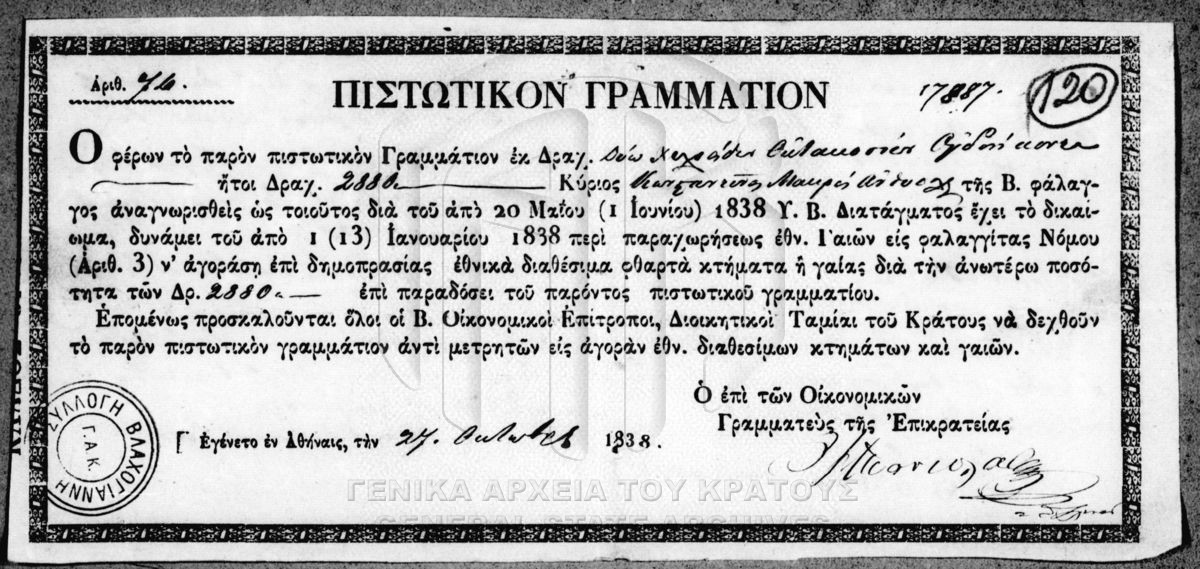 Ἀριθ. 76.
ΠΙΣΤΩΤΙΚΟΝ ΓΡΑΜΜΑΤΙΟΝ
17887.
120
Ο φέρων τὸ παρὸν πιστωτικὸν Γραμμάτιον ἐκ Δραχ. δύω χιλιάδων ὀκτακοσίων ὀγδοήκοντα
ἤτοι Δραχ. 2880 Κύριος Μαυρο τῆς Β. φάλαγ-
γος ἀναγνωρισθεὶς ὡς τοιοῦτος διὰ τοῦ ἀπὸ 20 Μαΐου (1 Ἰουνίου) 1838 Υ. Β. Διατάγματος ἔχει τὸ δικαί-
ωμα, δυνάμει τοῦ ἀπὸ 1 (13) Ἰανουαρίου 1838 περὶ παραχωρήσεως ἐθν. Γαιῶν εἰς φαλαγγίτας Νόμου
(Ἀριθ. 3) ν' ἀγοράσῃ ἐπὶ δημοπρασίας ἐθνικὰ διαθέσιμα φθαρτὰ κτήματα ἢ γαίας διὰ τὴν ἀνωτέρω ποσό-
τητα τῶν Δρ. 2880 ἐπὶ παραδόσει τοῦ παρόντος πιστωτικοῦ γραμματίου.
Ἑπομένως προσκαλοῦνται ὅλοι οἱ Β. Οἰκονομικοὶ Ἐπίτροποι, Διοικητικοὶ Ταμίαι τοῦ Κράτους νὰ δεχθοῦν
τὸ παρὸν πιστωτικὸν γραμμάτιον ἀντὶ μετρητῶν εἰς ἀγορὰν ἐθν. διαθεσίμων κτημάτων καὶ γαιῶν.
Ὁ ἐπὶ τῶν Οἰκονομικῶν
Γραμματεὺς τῆς Ἐπικρατείας
Ἐγένετο ἐν Ἀθήναις, τὴν 27 Ὀκτωβρ 1838.
ΣΥΛΛΟΓΗ ΒΛΑΧΟΓΙΑΝΝΗ
Γ.Α.Κ.
ΓΕΝΙΚΑ ΑΡΧΕΙΑ ΤΟΥ ΚΡΑΤΟΥΣ
GENERAL STATE ARCHIVES